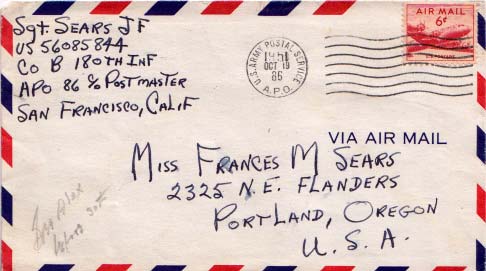 Sgt. SEARS JF
US 56085844
Co B 180TH INF
APO 86 c/o POSTMASTER
SAN FRANCISCO, CALIF
U.S. ARMY POSTAL SERVICE
1951
OCT 19
86
A.P.O.
AIR MAIL
6¢
U.S. POSTAGE
VIA AIR MAIL
MISS FRANCES M SEARS
2325 N.E. FLANDERS
PORTLAND, OREGON
U.S.A.
Alex